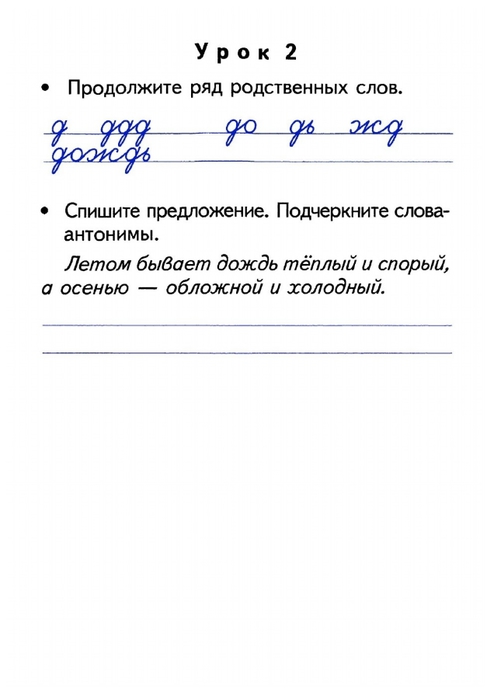 Урок 2
• Продолжите ряд родственных слов.
д ддд до дь жд
дождь
• Спишите предложение. Подчеркните слова-
антонимы.
Летом бывает дождь тёплый и спорый,
а осенью — обложной и холодный.